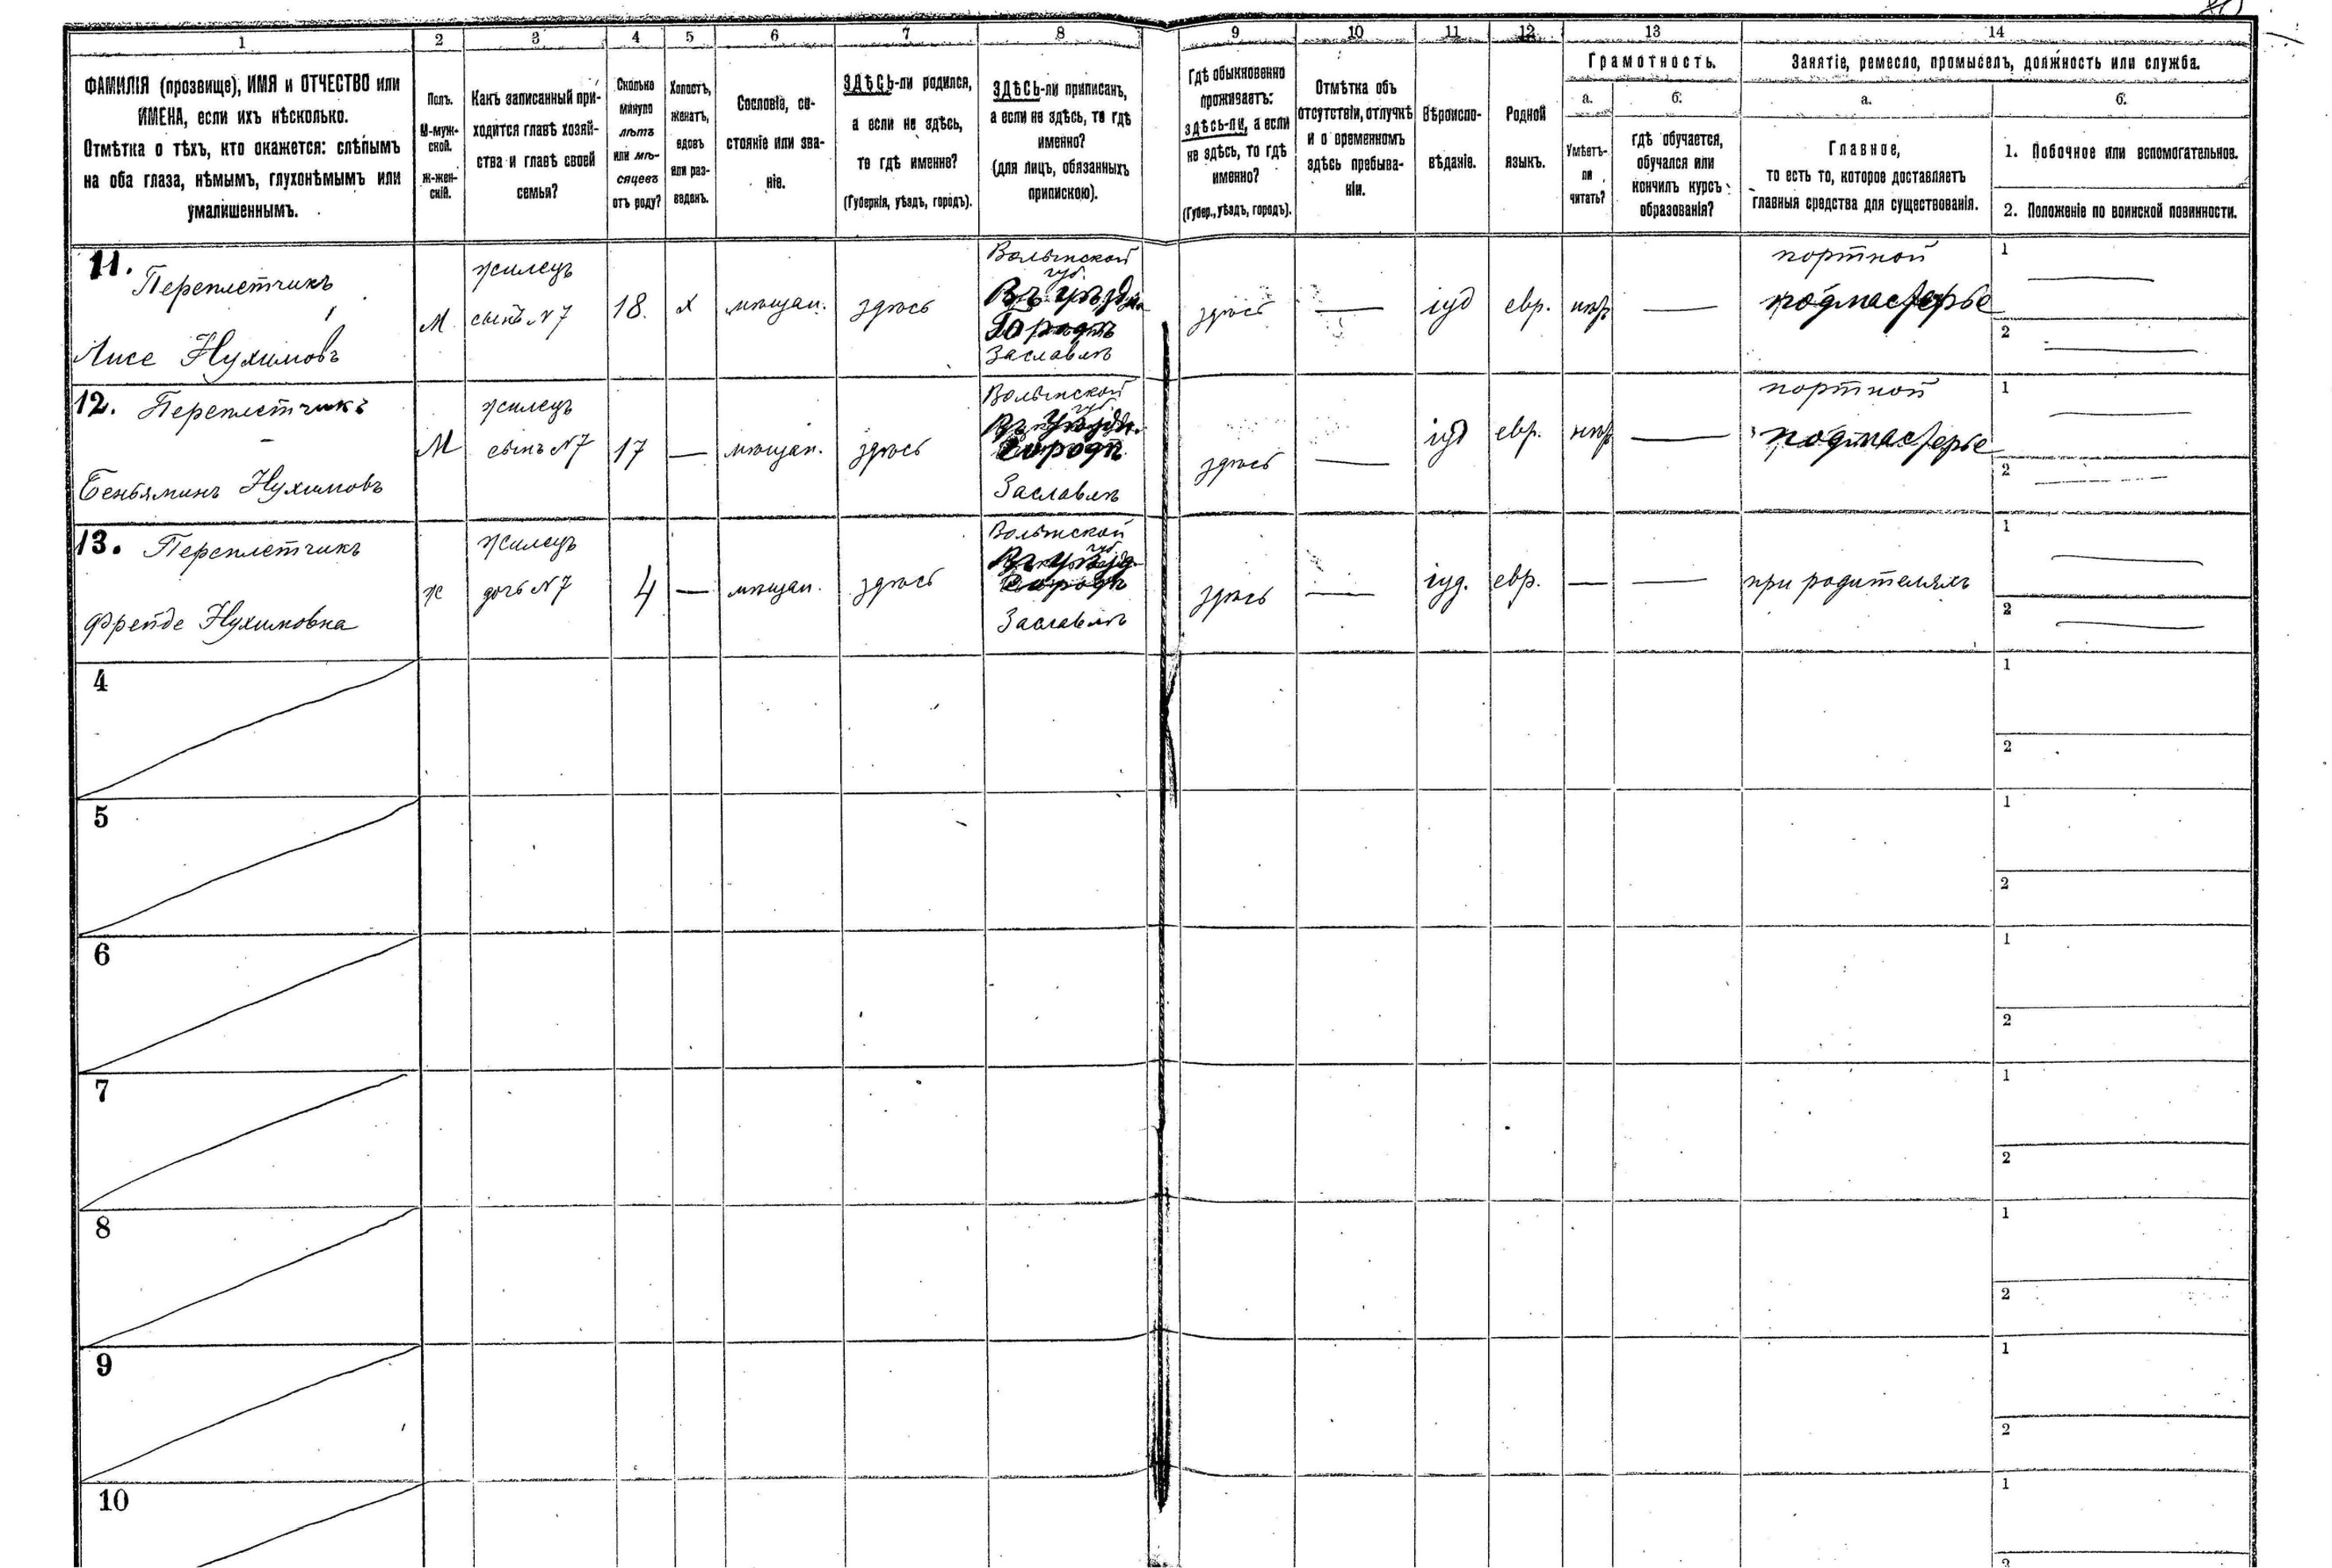 1 2 3 4 5 6 7 8 9 10 11 12 13 14
ФАМИЛІЯ (прозвище), ИМЯ и ОТЧЕСТВО или
ИМЕНА, если ихъ нѣсколько.
Отмѣтка о тѣхъ, кто окажется: слѣпымъ
на оба глаза, нѣмымъ, глухонѣмымъ или
умалишеннымъ.
Полъ.
М-муж-
ской.
ж-жен-
скій.
Какъ записанный при-
ходится главѣ хозяй-
ства и главѣ своей
семьи?
Сколько
минуло
лѣтъ
или мѣ-
сяцевъ
отъ роду?
Холостъ,
женатъ,
вдовъ
или раз-
веденъ.
Сословіе, со-
стояніе или зва-
ніе.
ЗДѢСЬ-ли родился,
а если не здѣсь,
то гдѣ именно?
(Губернія, уѣздъ, городъ).
ЗДѢСЬ-ли приписанъ,
а если не здѣсь, то гдѣ
именно?
(для лицъ, обязанныхъ
припискою).
Гдѣ обыкновенно
проживаетъ:
здѣсь-ли, а если
не здѣсь, то гдѣ
именно?
(Губер., уѣздъ, городъ).
Отмѣтка объ
отсутствіи, отлучкѣ
и о временномъ
здѣсь пребыва-
ніи.
Вѣроиспо-
вѣданіе.
Родной
языкъ.
Грамотность.
а.
Умѣетъ-
ли
читать?
б.
гдѣ обучается,
обучался или
кончилъ курсъ
образованія?
Занятіе, ремесло, промыселъ, должность или служба.
а.
Главное,
то есть то, которое доставляетъ
главныя средства для существованія.
б.
1. Побочное или вспомогательное.
2. Положеніе по воинской повинности.
11.
Переплетчикъ
Лисе Нухимовъ
М
жилецъ
сынъ N7
18.
х
мѣщан.
здѣсь
Волынской
губ.
Въ уѣздн.
Городѣ
Заславлѣ
здѣсь
—
іуд
евр.
—
портной
подмастерье
1 —
2 —
12. Переплетчикъ
Беньяминъ Нухимовъ
М
жилецъ
сынъ N7
17
—
мѣщан.
здѣсь
Волынской
губ.
Въ Уѣздн.
Городѣ
Заславлѣ
здѣсь
—
іуд
евр.
—
портной
подмастерье
1 —
2 —
13. Переплетчикъ
Фрейде Нухимовна
ж
жилецъ
дочь N7
4
—
мѣщан.
здѣсь
Волынской
губ.
Въ Уѣзд.
Городѣ
Заславлѣ
здѣсь
—
іуд.
евр.
—
—
при родителяхъ
1 —
2 —
4
1
2
5
1
2
6
1
2
7
1
2
8
1
2
9
1
2
10
1
2